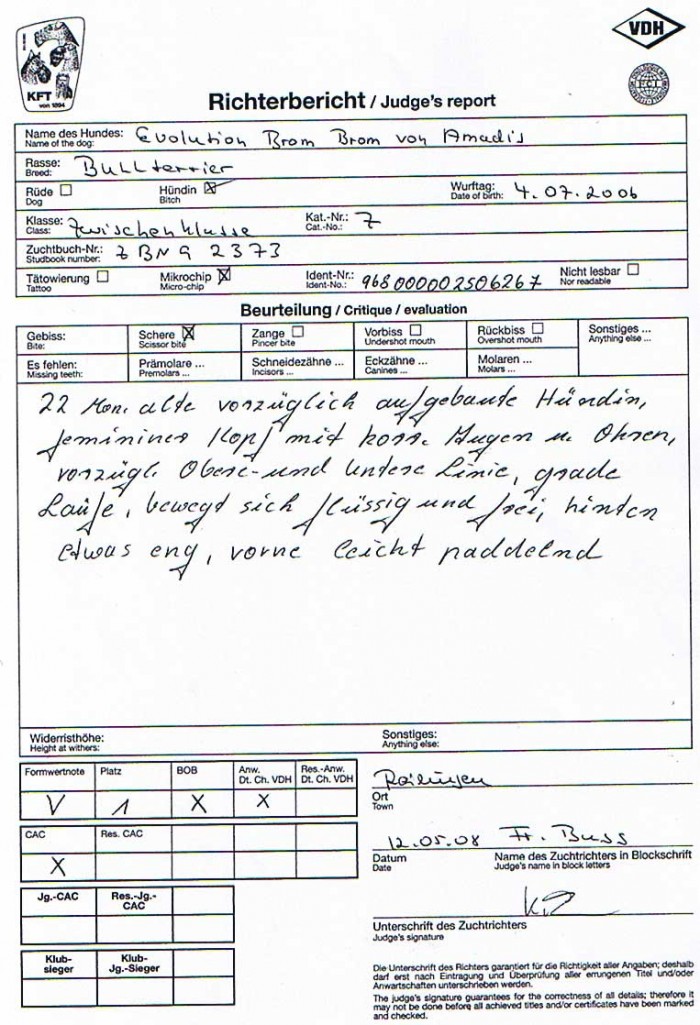 KFT
von 1894
VDH
Richterbericht / Judge's report
Name des Hundes: Evolution Brom Brom von Amadis
Name of the dog:
Rasse: Bullterrier
Breed:
Rüde Hündin X Wurftag: 4.07.2006
Dog Bitch Date of birth:
Klasse: Zwischenklasse Kat.-Nr.: 7
Class: Cat.-No.:
Zuchtbuch-Nr.: 7 BNG 2373
Studbook number:
Tätowierung Mikrochip X Ident-Nr.: 968000002506267 Nicht lesbar
Tattoo Micro-chip Ident-No.: Nor readable
Beurteilung / Critique / evaluation
Gebiss: Schere X Zange Vorbiss Rückbiss Sonstiges ...
Bite: Scissor bite Pincer bite Undershot mouth Overshot mouth Anything else ...
Es fehlen: Prämolare ... Schneidezähne ... Eckzähne ... Molaren ...
Missing teeth: Premolars ... Incisors ... Canines ... Molars ...
22 Mon. alte vorzüglich aufgebaute Hündin,
femininer Kopf mit korr. Augen u. Ohren,
vorzügl. Obere- und Untere Linie, grade
Läufe, bewegt sich flüssig und frei, hinten
etwas eng, vorne leicht paddelnd
Widerristhöhe: Sonstiges:
Height at withers: Anything else:
Formwertnote Platz BOB Anw. Dt. Ch. VDH Res.-Anw. Dt. Ch. VDH
V 1 X X
CAC Res. CAC
X
Jg.-CAC Res.-Jg.-CAC
Klub-sieger Klub-Jg.-Sieger
Ort
Town
12.05.08 Fr. Buss
Datum Name des Zuchtrichters in Blockschrift
Date Judge's name in block letters
Unterschrift des Zuchtrichters
Judge's signature
Die Unterschrift des Richters garantiert für die Richtigkeit aller Angaben; deshalb
darf erst nach Eintragung und Überprüfung aller errungenen Titel und/oder
Anwartschaften unterschrieben werden.
The judge's signature guarantees for the correctness of all details; therefore it
may not be done before all achieved titles and/or certificates have been marked
and checked.